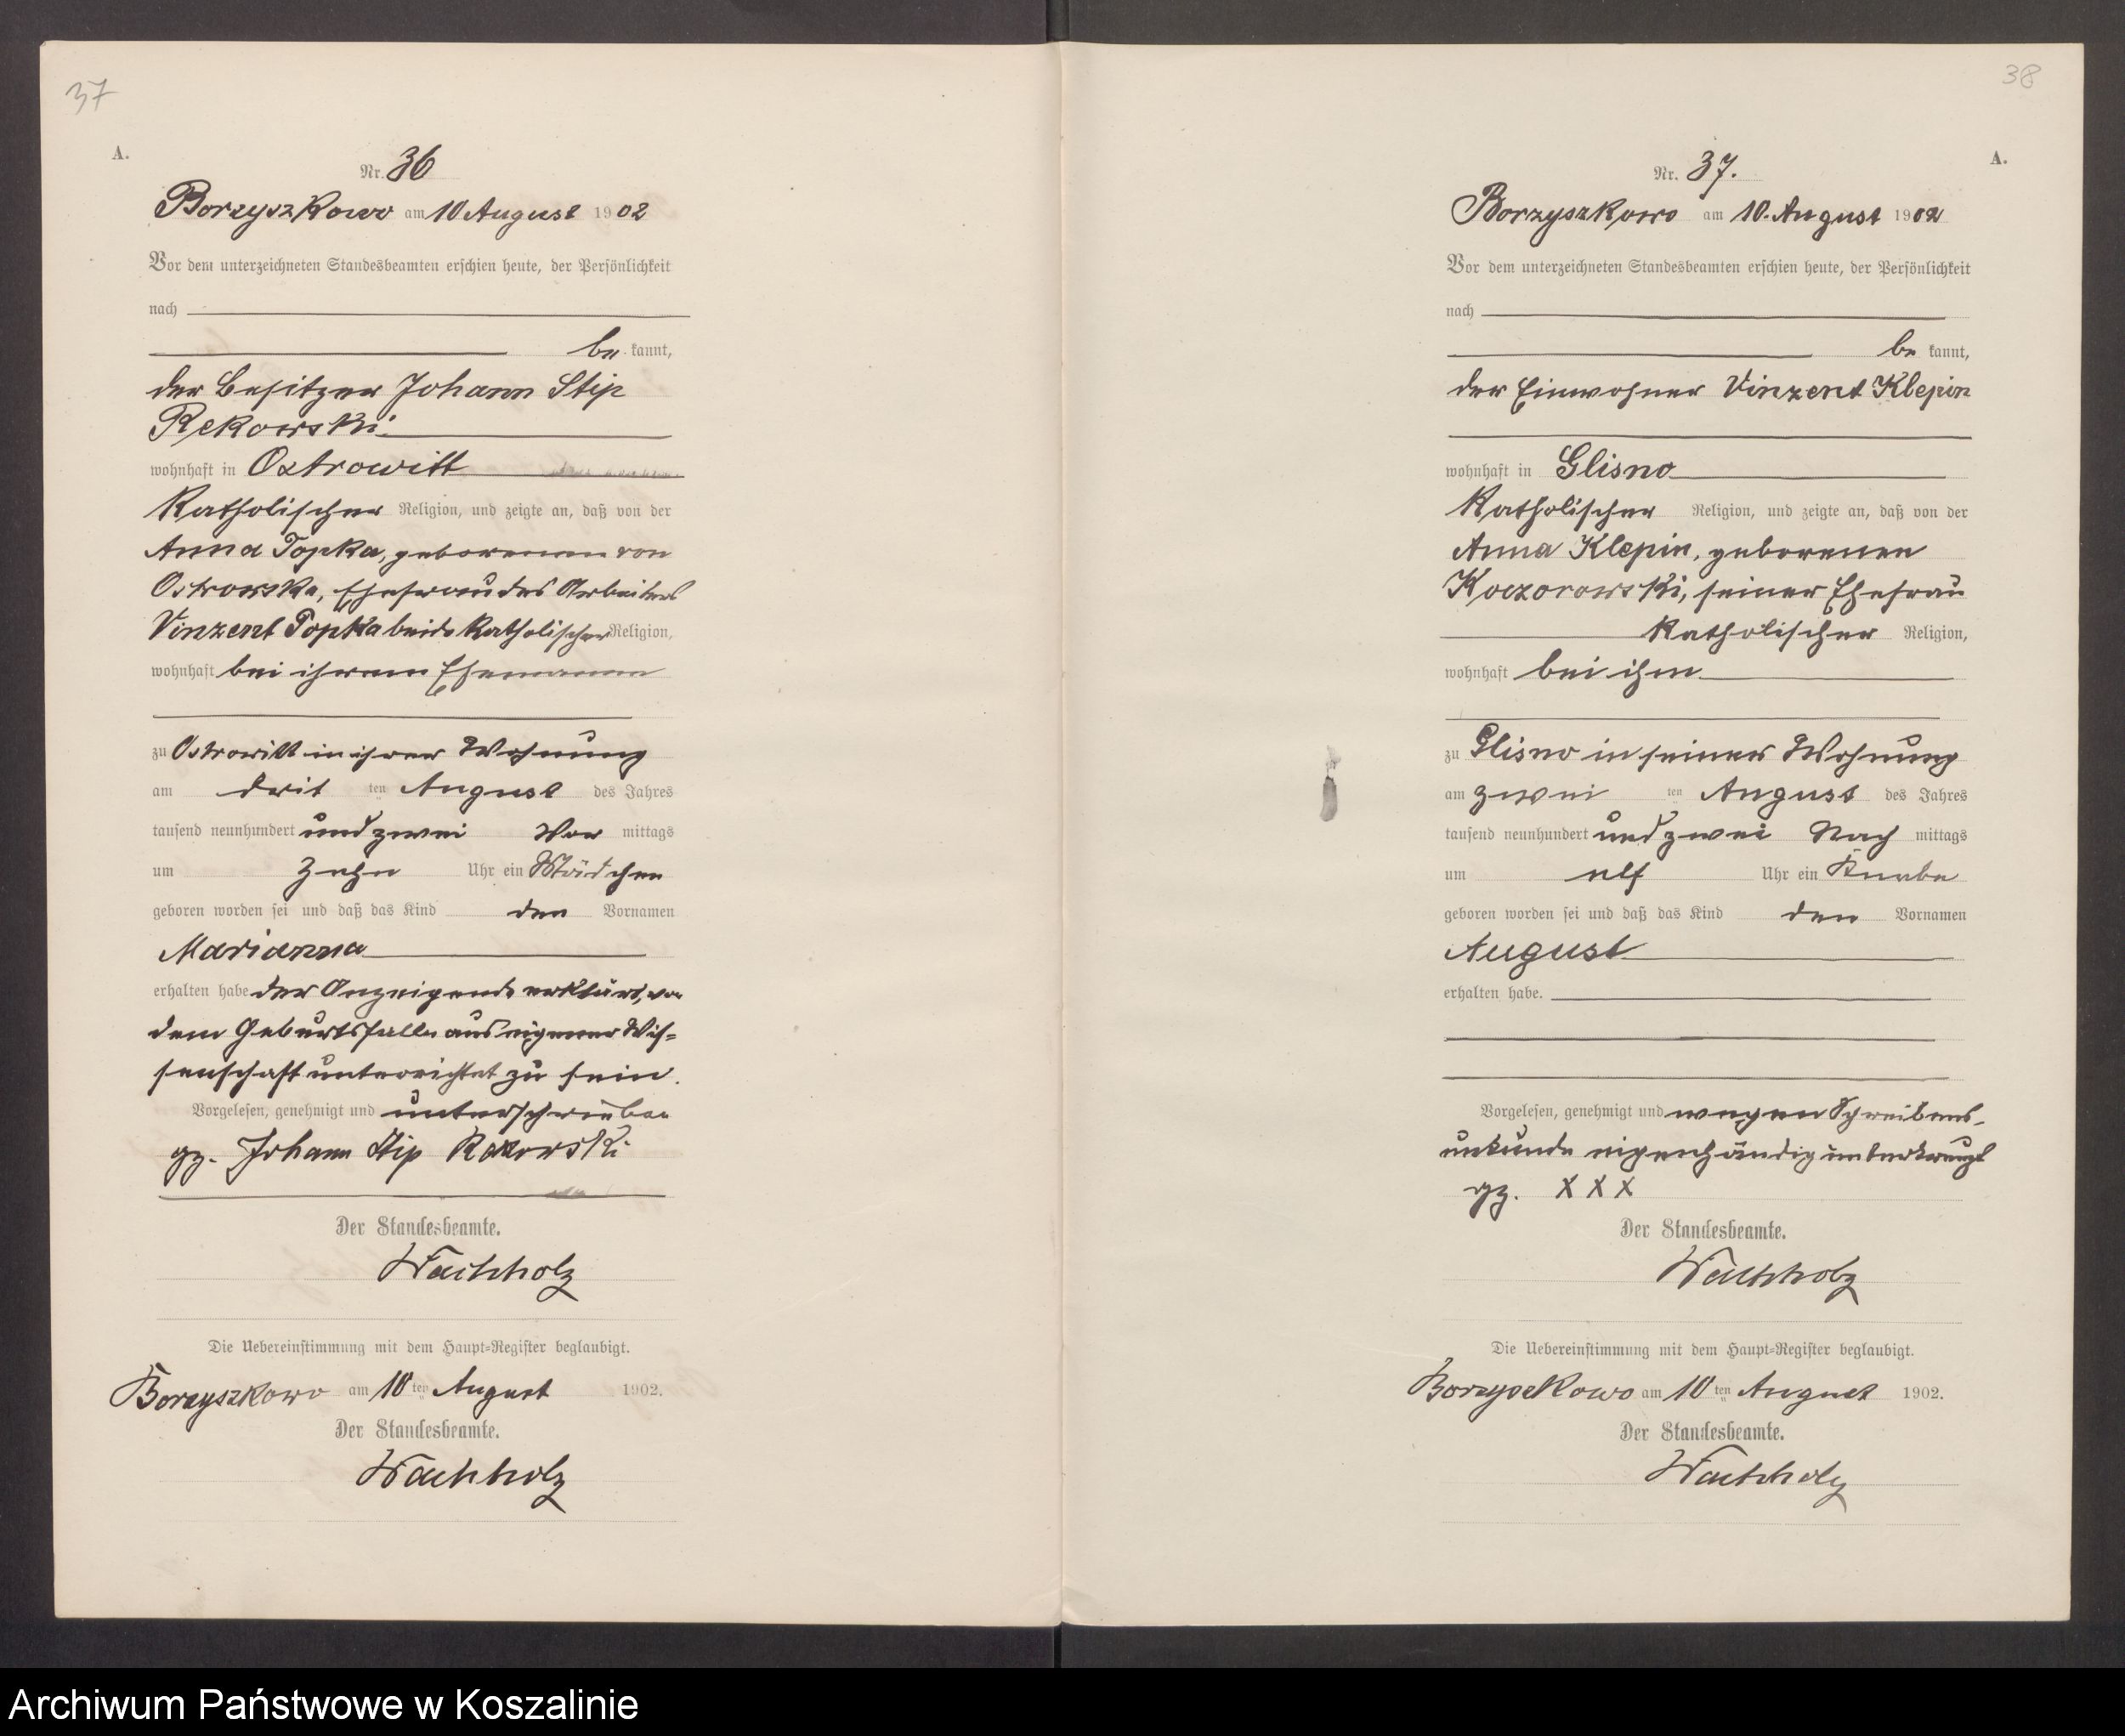 37
A.
Nr. 36
Borzyszkowo am 10 August 1902
Vor dem unterzeichneten Standesbeamten erschien heute, der Persönlichkeit
nach
be kannt,
der Besitzer Johann Stip
Rekowski
wohnhaft in Ostrowitt
katholischer Religion, und zeigte an, daß von der
Anna Popka, geborenen von
Ostrowska, Ehefrau des Arbeiters
Vinzent Popka beide katholischer Religion,
wohnhaft bei ihrem Ehemann
zu Ostrowitt in ihrer Wohnung
am drit ten August des Jahres
tausend neunhundert und zwei Vor mittags
um zehn Uhr ein Mädchen
geboren worden sei und daß das Kind den Vornamen
Marianna
erhalten habe der Anzeigende erklärt, von
dem Geburtsfalle aus eigener Wis=
senschaft unterrichtet zu sein.
Vorgelesen, genehmigt und unterschrieben
gz. Johann Stip Rekowski
Der Standesbeamte.
Wachholz
Die Uebereinstimmung mit dem Haupt=Register beglaubigt.
Borzyszkowo am 10 ten August 1902.
Der Standesbeamte.
Wachholz
38
A.
Nr. 37.
Borzyszkowo am 10. August 1902
Vor dem unterzeichneten Standesbeamten erschien heute, der Persönlichkeit
nach
be kannt,
der Einwohner Vinzent Klepin
wohnhaft in Glisno
katholischer Religion, und zeigte an, daß von der
Anna Klepin, geborenen
Koczorowski, seiner Ehefrau
katholischer Religion,
wohnhaft bei ihm
zu Glisno in seiner Wohnung
am zwei ten August des Jahres
tausend neunhundert und zwei Nach mittags
um elf Uhr ein Knabe
geboren worden sei und daß das Kind den Vornamen
August
erhalten habe.
Vorgelesen, genehmigt und wegen Schreibens-
unkunde eigenhändig unterkreuzt
gz. X X X
Der Standesbeamte.
Wachholz
Die Uebereinstimmung mit dem Haupt=Register beglaubigt.
Borzyszkowo am 10 ten August 1902.
Der Standesbeamte.
Wachholz
Archiwum Państwowe w Koszalinie